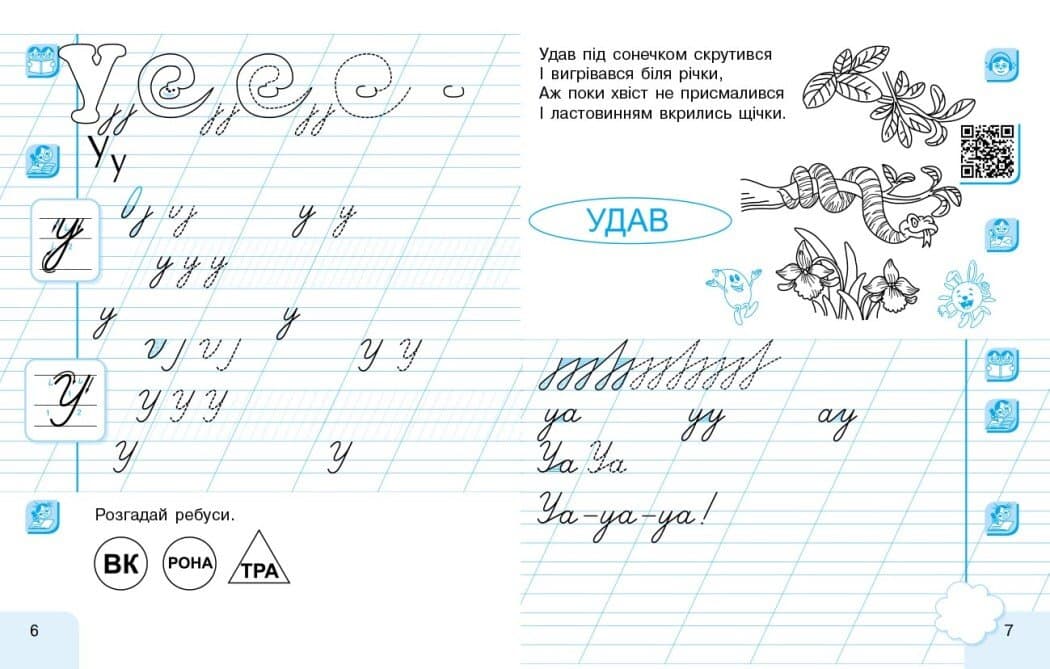 У
уу уу уу
У у
у у у
у у у
у у
У У У
У У У
У У
Розгадай ребуси.
ВК РОНА ТРА
6
Удав під сонечком скрутився
І вигрівався біля річки,
Аж поки хвіст не присмалився
І ластовинням вкрились щічки.
УДАВ
уа уу ау
Уа Уа
Уа-уа-уа!
7